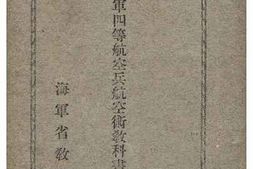 軍四等航空兵航空術教科書
海軍省教